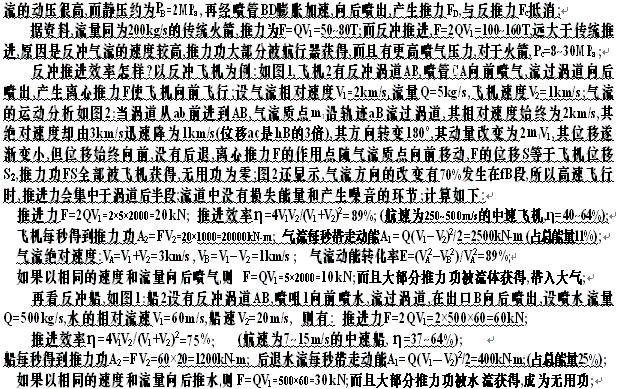 流的动压很高,而静压约为P_B=2MPa,再经喷管BD膨胀加速,向后喷出,产生推力F_D,与反推力F_C抵消;
据资料,流量同为200kg/s的传统火箭,推力为F=QV₁=50~80T;而反冲推进,F=2QV₁=100-160T,远大于传统推
进,原因是反冲气流的速度较高,推力功大部分被航行器获得,而且有更高喷气压力,对于火箭,P₀=8~30MPa;
反冲推进效率怎样?以反冲飞机为例:如图1,飞机2有反冲涡道AB,喷管CA向前喷气,流过涡道向后
喷出,产生离心推力F使飞机向前飞行;设气流相对速度V₁=2km/s,流量Q=5kg/s,飞机速度V₂=1km/s;气流
的运动分析如图2:当涡道从ab前进到AB,气流质点m沿轨迹aB流过涡道,其相对速度始终为2km/s,其
绝对速度却由3km/s迅速降为1km/s(位移ac是hB的3倍),其方向转变180°,其动量改变为2mV₁,其位移逐
渐变小,但位移始终向前,没有后退,离心推力F的作用点随气流质点向前移动,F的位移S等于飞机位移
S₂,推力功FS全部被飞机获得,无用功为零;图2还显示,气流方向的改变有70%发生在fB段,所以高速飞行
时,推进力会集中于涡道后半段;流道中没有损失能量和产生噪音的环节;计算如下:
推进力F=2QV₁=2×5×2000=20kN; 推进效率η=4V₁V₂/(V₁+V₂)²=89%; (航速为250~500m/s的中速飞机,η=40~64%);
飞机每秒得到推力功A₂=FV₂=20×1000=20000kN·m; 气流每秒带走动能A₁=Q(V₁-V₂)²/2=2500kN·m(占总能量11%);
气流绝对速度:V_A=V₁+V₂=3km/s,V_B=V₁-V₂=1km/s; 气流动能转化率E=(V_A²-V_B²)/V_A²=89%;
如果以相同的速度和流量向后喷气,则 F=QV₁=5×2000=10kN;而且大部分推力功被流体获得,带入大气;
再看反冲船,如图1:船2设有反冲涡道AB,喷咀1向前喷水,流过涡道,在出口B向后喷出,设喷水流量
Q=500kg/s,水的相对流速V₁=60m/s,船速V₂=20m/s, 则有: 推进力F=2QV₁=2×500×60=60kN;
推进效率η=4V₁V₂/(V₁+V₂)²=75%; (航速为7~15m/s的中速船, η=37~64%);
船每秒得到推力功A₂=FV₂=60×20=1200kN·m; 后退水流每秒带走动能A₁=Q(V₁-V₂)²/2=400kN·m(占总能量25%);
如果以相同的速度和流量向后推水,则F=QV₁=500×60=30kN;而且大部分推力功被水流获得,成为无用功;